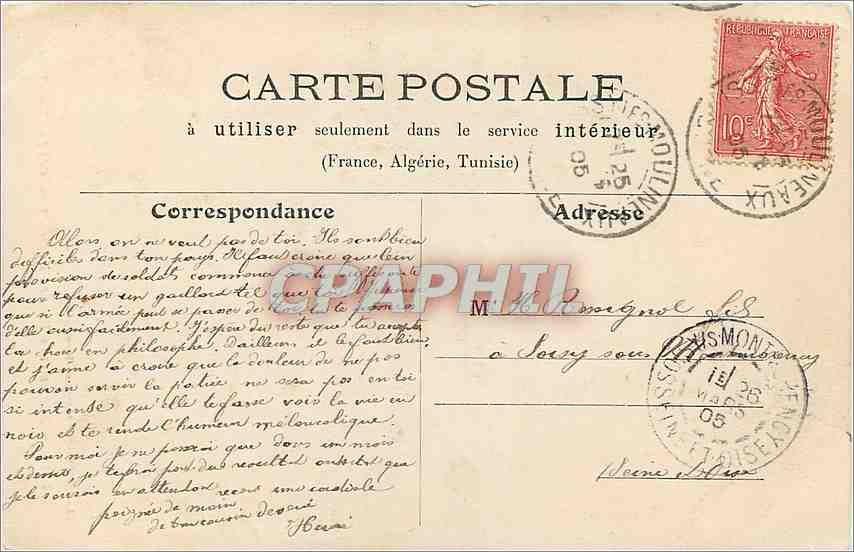 REPUBLIQUE FRANÇAISE
10c
CARTE POSTALE
à utiliser seulement dans le service intérieur
(France, Algérie, Tunisie)
LES MOULINEAUX
25
05
LES MOULINEAUX
05
Correspondance
Adresse
Allons, on ne veut pas de toi. Ils sont bien
difficiles dans ton pays. Il faut croire que leur
provision de soldats commence à être suffisante
pour refuser un gaillard tel que toi. Je pense
que si l'armée peut se passer de toi tu te
d'elle aussi facilement. J'espère du reste que tu
ta chose en philosophe. D'ailleurs il le faut bien
et j'aime à croire que la douleur de ne pas
pouvoir servir la patrie ne sera pas en toi
si intense qu'elle te fasse voir la vie en
noir et te rende l'humeur mélancolique.
Pour moi je ne passerai que dans un mois
et je te ferai part du resultat aussitôt que
je le saurai en attendant reçois une cordiale
poignée de main
de ton cousin dévoué
CPAPHIL
M. H. Rossignol
à Soisy sous Montmorency
SOISY-SOUS-MONTMORENCY
1E 26
MARS
05
SEINE-ET-OISE
Seine & Oise